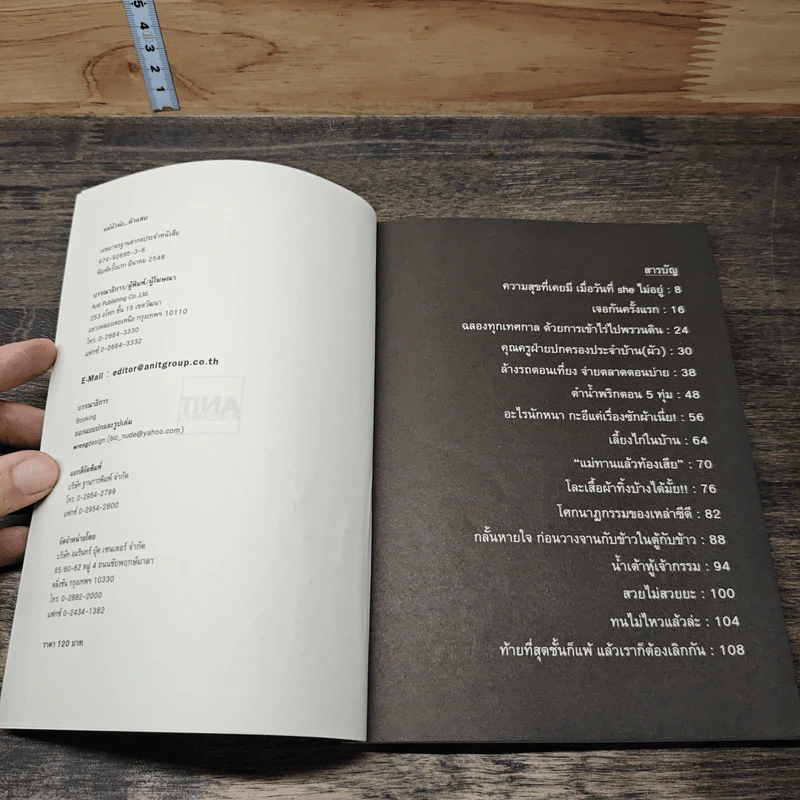 5
4
3
2
1
แม่ผัวน่ะ...ตัวแสบ
เลขมาตรฐานสากลประจำหนังสือ
974-92895-3-6
พิมพ์ครั้งแรก มีนาคม 2548
บรรณาธิการ/ผู้พิมพ์/ผู้โฆษณา
Anit Publishing Co.,Ltd.
253 อโศก ชั้น 15 เขตวัฒนา
แขวงคลองเตยเหนือ กรุงเทพฯ 10110
โทร. 0-2664-3330
แฟกซ์ 0-2664-3332
E-Mail : editor@anitgroup.co.th
บรรณาธิการ
Booking
ออกแบบปกและรูปเล่ม
wrongdesign (bic_nude@yahoo.com)
แยกสีจัดพิมพ์
บริษัท ฐานการพิมพ์ จำกัด
โทร. 0-2954-2799
แฟกซ์ 0-2954-2800
จัดจำหน่ายโดย
บริษัท อมรินทร์ บุ๊ค เซนเตอร์ จำกัด
65/60-62 หมู่ 4 ถนนชัยพฤกษ์มาลา
ตลิ่งชัน กรุงเทพฯ 10330
โทร. 0-2882-2000
แฟกซ์ 0-2434-1382
ราคา 120 บาท
ANIT
สารบัญ
ความสุขที่เคยมี เมื่อวันที่ she ไม่อยู่ : 8
เจอกันครั้งแรก : 16
ฉลองทุกเทศกาล ด้วยการเข้าไร่ไปพรวนดิน : 24
คุณครูฝ่ายปกครองประจำบ้าน(ผัว) : 30
ล้างรถตอนเที่ยง จ่ายตลาดตอนบ่าย : 38
ตำน้ำพริกตอน 5 ทุ่ม : 48
อะไรนักหนา กะอีแค่เรื่องซักผ้าเนี่ย! : 56
เลี้ยงไก่ในบ้าน : 64
“แม่ทานแล้วท้องเสีย” : 70
โละเสื้อผ้าทิ้งบ้างได้มั้ย!! : 76
โศกนาฏกรรมของเหล่าซีดี : 82
กลั้นหายใจ ก่อนวางจานกับข้าวในตู้กับข้าว : 88
น้ำเต้าหู้เจ้ากรรม : 94
สวยไม่สวยยะ : 100
ทนไม่ไหวแล้วล่ะ : 104
ท้ายที่สุดชั้นก็แพ้ แล้วเราก็ต้องเลิกกัน : 108